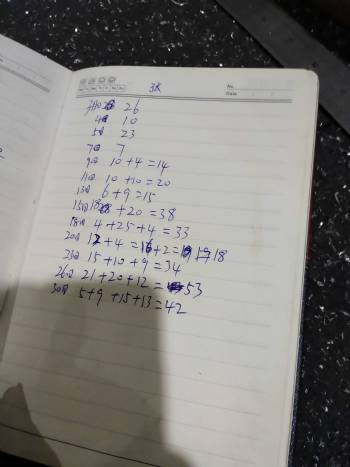 张
No.
Date
26
4日 10
5日 23
7日 7
9日 10+4=14
11日 10+10=20
13日 6+9=15
15日 18+20=38
18日 4+25+4=33
20日 12+4=16+2=18
23日 15+10+9=34
26日 21+20+12=53
30日 5+9+15+13=42